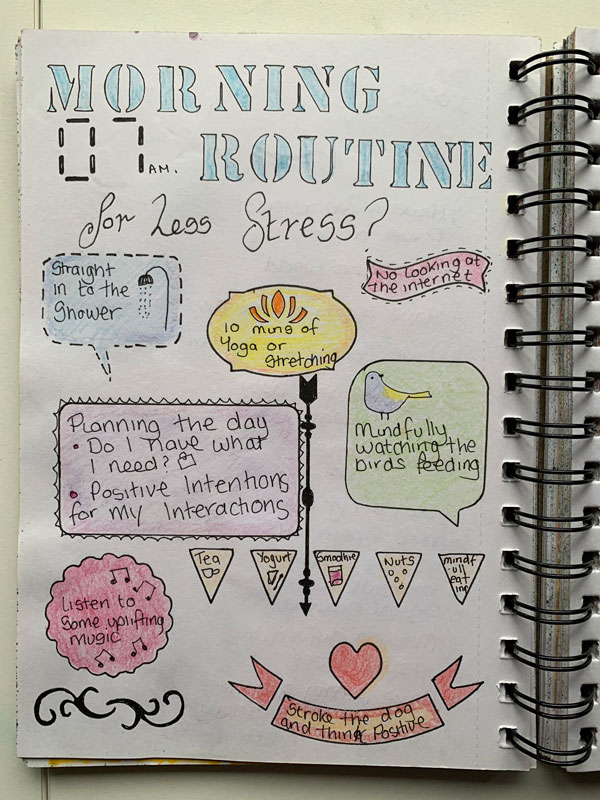 MORNING
07 AM. ROUTINE
for Less Stress?
Straight
in to the
Shower
No looking at
the internet
10 mins of
Yoga or
Stretching
Planning the day
• Do I have what
I need?
• Positive Intentions
for my Interactions
Mindfully
watching the
birds feeding
Tea
Yogurt
Smoothie
Nuts
mindf
ull
eat
ing
Listen to
Some uplifting
music
Stroke the dog
and think Positive